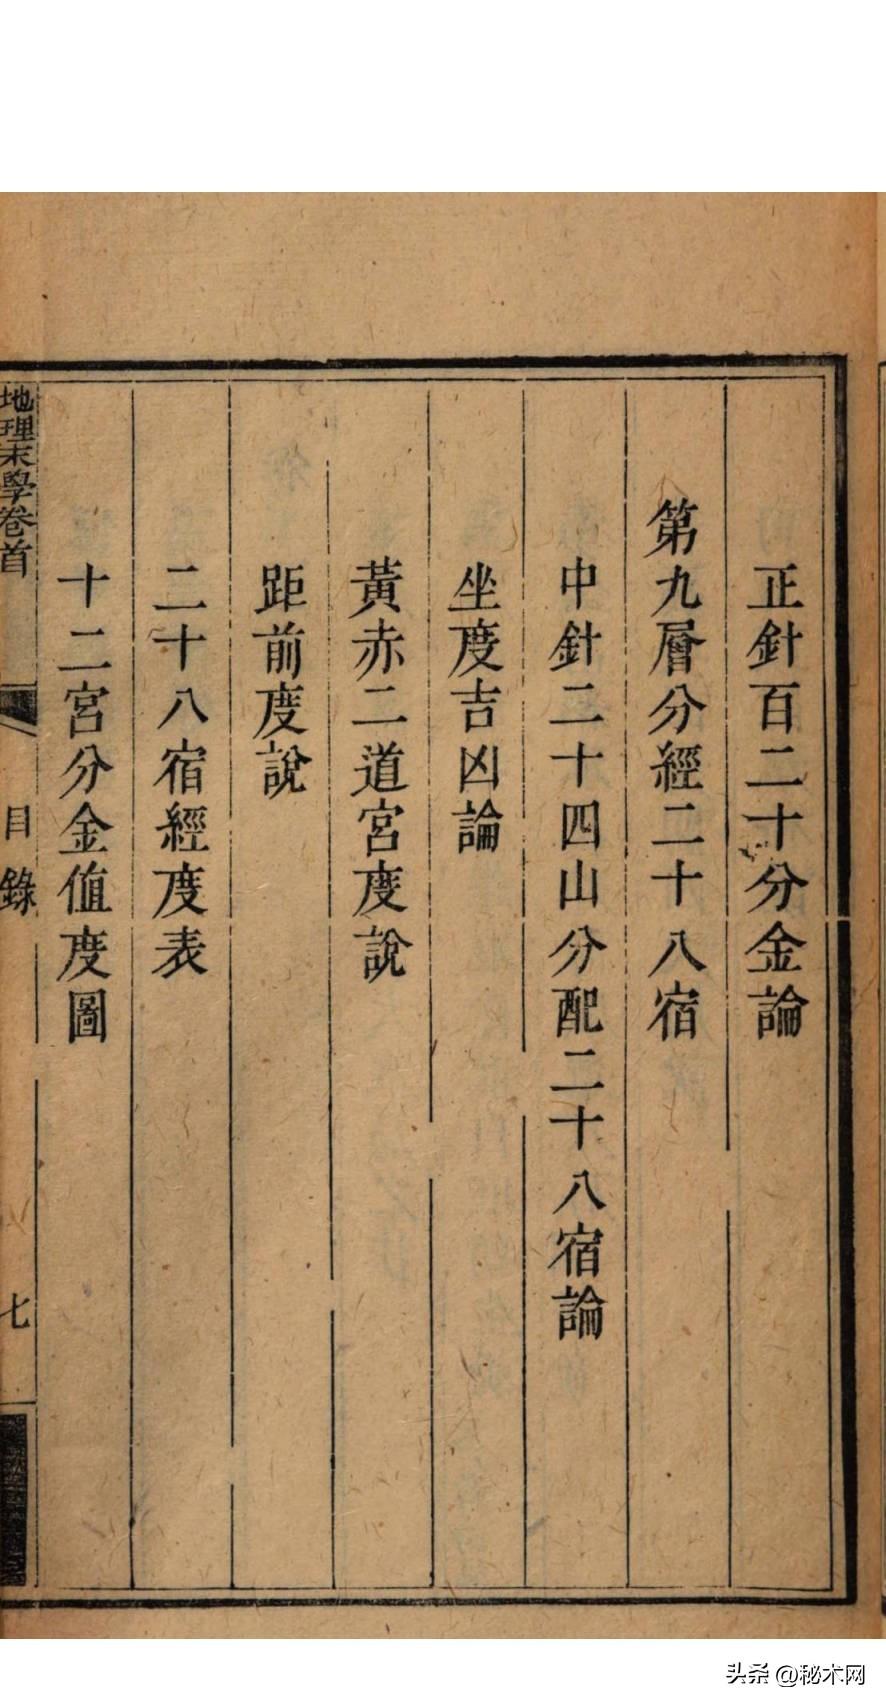 正針百二十分金論
第九層分經二十八宿
中針二十四山分配二十八宿論
坐度吉凶論
黃赤二道宮度說
距前度說
二十八宿經度表
十二宮分金値度圖
地理末學卷首
目錄
七
头条 @秘术网